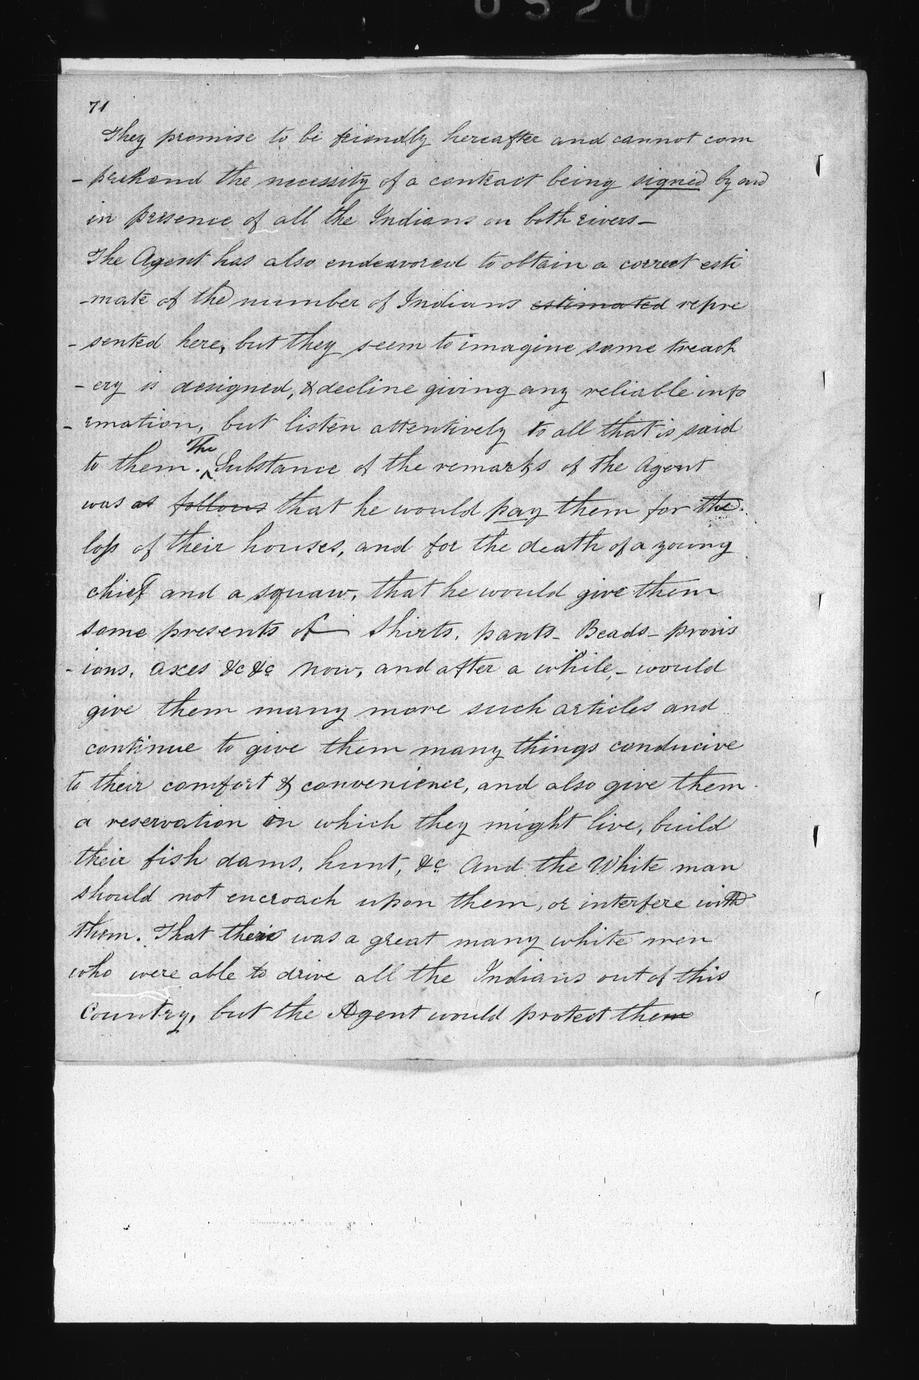 0520
71
They promise to be friendly hereafter and cannot com
-prehend the necessity of a contract being signed by and
in presence of all the Indians on both rivers-
The Agent has also endeavored to obtain a correct esti
-mate of the number of Indians estimated repre
-sented here, but they seem to imagine some treach
-ery is designed, & decline giving any reliable info
-rmation, but listen attentively to all that is said
to them. The Substance of the remarks of the Agent
was as follows that he would pay them for the
loss of their houses, and for the death of a young
chief and a squaw, that he would give them
some presents of Shirts, pants- Beads- provis
-ions, axes &c &c now, and after a while,- would
give them many more such articles and
continue to give them many things conducive
to their comfort & convenience, and also give them
a reservation on which they might live, build
their fish dams, hunt, &c And the White man
should not encroach upon them, or interfere with
them. That theris was a great many white men
who were able to drive all the Indians out of this
Country, but the Agent would protect them